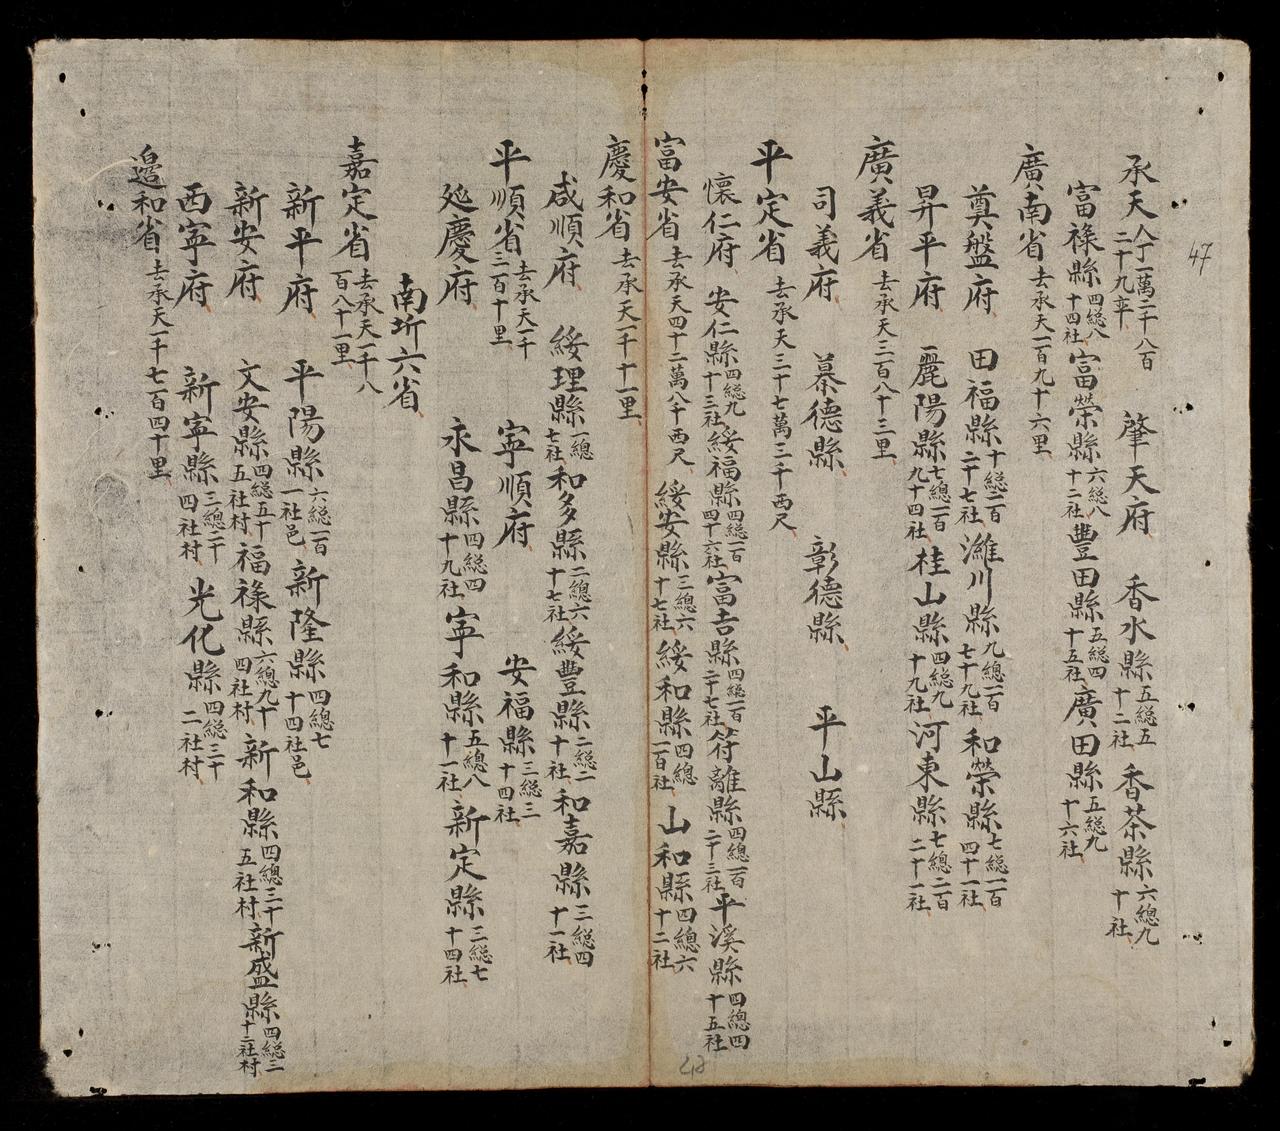 承天 人丁一萬二千八百二十九率 肇天府 香水縣 五総五十二社 香茶縣 六總九十社
富祿縣 四総八十四社 富榮縣 六総八十二社 豐田縣 五総四十五社 廣田縣 五総九十六社
廣南省 去承天一百九十六里
奠盤府 田福縣 十総一百二十七社 濰川縣 九總一百七十九社 和榮縣 七総一百四十一社
昇平府 麗陽縣 七總一百九十四社 桂山縣 四総九十九社 河東縣 七總二百二十一社
廣義省 去承天三百八十三里
司義府 慕德縣 彰德縣 平山縣
平定省 去承天三十七萬三千西尺
懷仁府 安仁縣 四総九十三社 綏福縣 四総一百四十六社 富吉縣 四総一百二十七社 符離縣 四總一百二十三社 平溪縣 四總四十五社
富安省 去承天四十二萬八千西尺 綏安縣 三總六十七社 綏和縣 四總一百社 山和縣 四總六十二社
慶和省 去承天一千十一里
咸順府 綏理縣 一總七社 和多縣 二總六十七社 綏豐縣 二総二十社 和嘉縣 三総四十一社
平順省 去承天一千三百十里 寧順府 安福縣 三総三十四社
延慶府 永昌縣 四総四十九社 寧和縣 五總八十一社 新定縣 三総七十四社
南圻六省
嘉定省 去承天一千八百八十一里
新平府 平陽縣 六総一百一社邑 新隆縣 四總七十四社邑
新安府 文安縣 四総五十五社村 福祿縣 六總九十四社村 新和縣 四總三十五社村 新盛縣 四総三十二社村
西寧府 新寧縣 三總二十四社村 光化縣 四総三十二社村
邉和省 去承天一千七百四十里
47